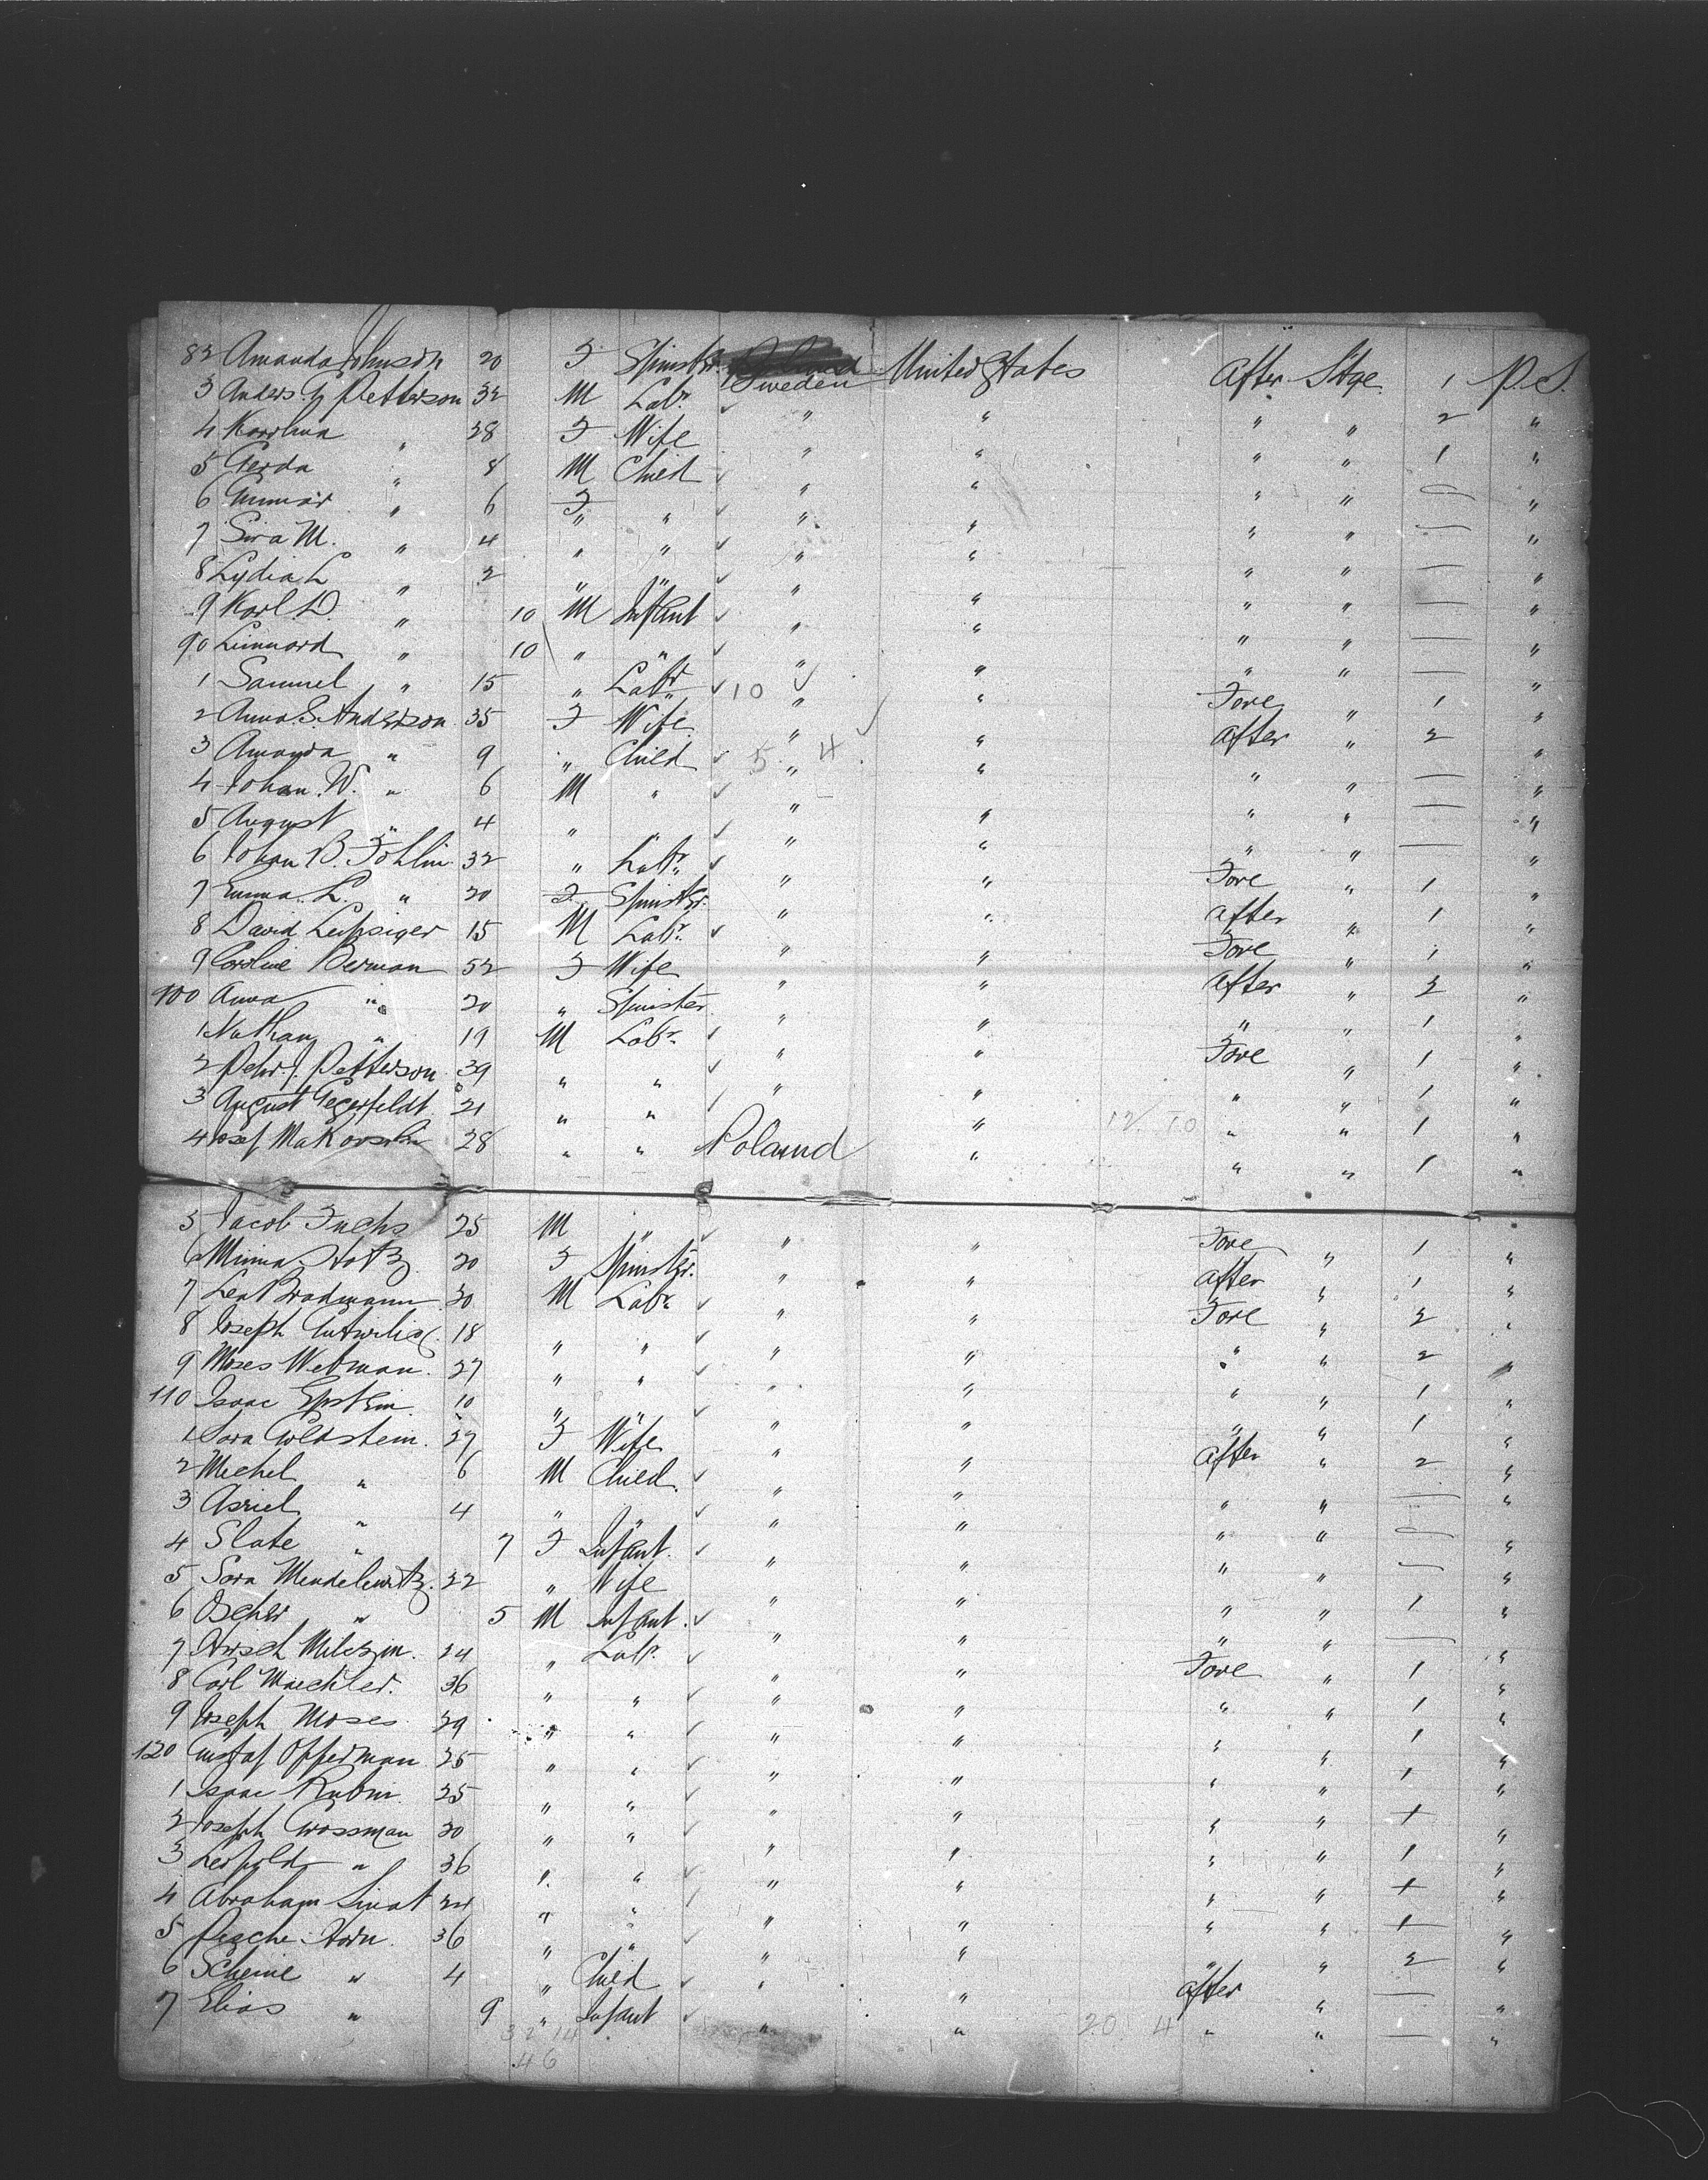 82 Amanda Johnson 20 F Spinstr. Sweden United States After Stge. 1 P.S.
3 Anders G Petterson 32 M Labr. " " " " 2 "
4 Karolina " 28 F Wife " " " " 1 "
5 Gerda " 8 M Child " " " " — "
6 Gunnar " 6 F " " " " " — "
7 Sira M. " 4 " " " " " " — "
8 Lydia L " 2 " " " " " " — "
9 Karl D. " 10 M Infant " " " " — "
90 Linnard " 10 " " " " " " — "
1 Samuel " 15 " Labr " " Fore " 1 "
2 Anna S. Anderson 35 F Wife " " After " 2 "
3 Amanda " 9 " Child " " " " — "
4 Johan W. " 6 M " " " " " — "
5 August " 4 " " " " " " — "
6 Johan B. Fohlin 32 " Labr. " " Fore " 1 "
7 Emma L. " 20 F Spinstr. " " After " 1 "
8 David Leipsiger 15 M Labr. " " Fore " 1 "
9 Caroline Berman 52 F Wife " " After " 2 "
100 Anna " 20 " Spinster " " " " 1 "
1 Nathan " 19 M Labr. " " Fore " 1 "
2 Pehr J. Petterson 39 " " " " " " 1 "
3 August Gegerfeldt 21 " " " " " " 1 "
4 Josef 28 " " Poland " " " 1 "
5 Jacob Fuchs 25 M " " " Fore " 1 "
6 Minna 20 F Spinstr. " " After " 1 "
7 30 M Labr. " " Fore " 2 "
8 Joseph 18 " " " " " " 2 "
9 Moses Webman 27 " " " " " " 1 "
110 Isaac Epstein 10 " " " " " " 1 "
1 Sara Goldstein 27 F Wife " " After " 2 "
2 Michel " 6 M Child " " " " — "
3 Asriel " 4 " " " " " " — "
4 Slate " 7 F Infant " " " " — "
5 Sara Mendelewitz 22 " Wife " " " " 1 "
6 Oscher " 5 M Infant " " " " — "
7 Hirsch 24 " Labr. " " Fore " 1 "
8 Carl Maechler 36 " " " " " " 1 "
9 Joseph Moses 29 " " " " " " 1 "
120 Gustaf Opperman 25 " " " " " " 1 "
1 Isaac Rubin 25 " " " " " " 1 "
2 Joseph Grossman 30 " " " " " " 1 "
3 Leopold " 36 " " " " " " 1 "
4 Abraham 24 " " " " " " 1 "
5 Pesche Horn 36 " " " " " " 2 "
6 Scheine " 4 " Child " " After " — "
7 Elias " 9 " Infant " " " " — "
32 14 20 4
46